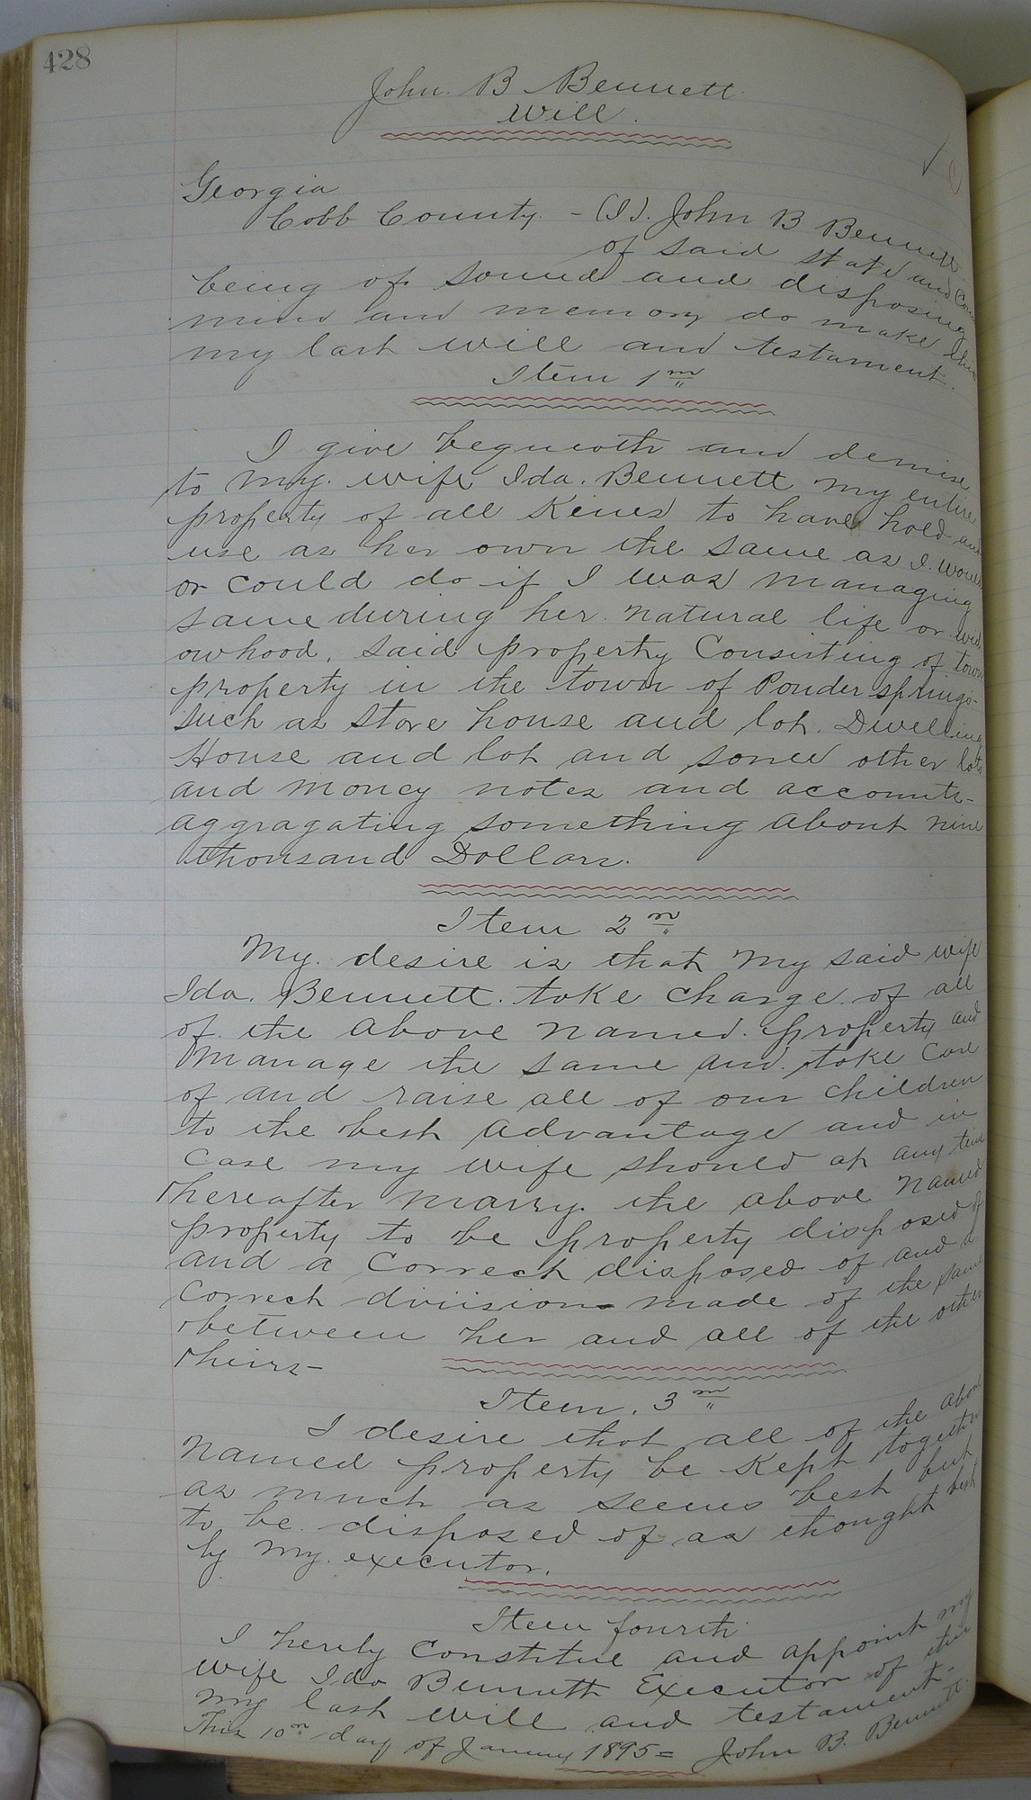 428
John. B Bennett.
Will.
Georgia
Cobb County. - (I). John B Bennett
of said state and Coun
being of sound and disposing
mind and memory do make this
my last will and testament.
Item 1m
I give bequeath and demise
to my. wife Ida. Bennett my entire
property of all Kines to have hold and
use as her own the same as I. would
or could do if I was managing
same during her natural life or wid
owhood. said property Consisting of town
property in the town of Powder springs-
such as store house and lot. Dwelling
House and lot and some other lots
and money notes and accounts-
aggragating something about nine
thousand Dollars.
Item 2n
My. desire is that my said wife
Ida. Bennett. take charge. of all
of the above named. property and
manage the same and. take Care
of and raise all of our children
to the best advantage and in
Case my wife should at any time
hereafter marry. the above named
property to be property disposed of
and a Correct disposed of and a
Correct division made of the same
between her and all of the other
heirs-
Item. 3m
I desire that all of the above
named property be Kept together
as much as seems best but
to be. disposed of as thought best
by my. executor.
Item fourth
I hereby Constitue and appoint my
wife Ida Bennett Executor of this
my last will and testament-
This 10m day of January 1895= John B. Bennett.